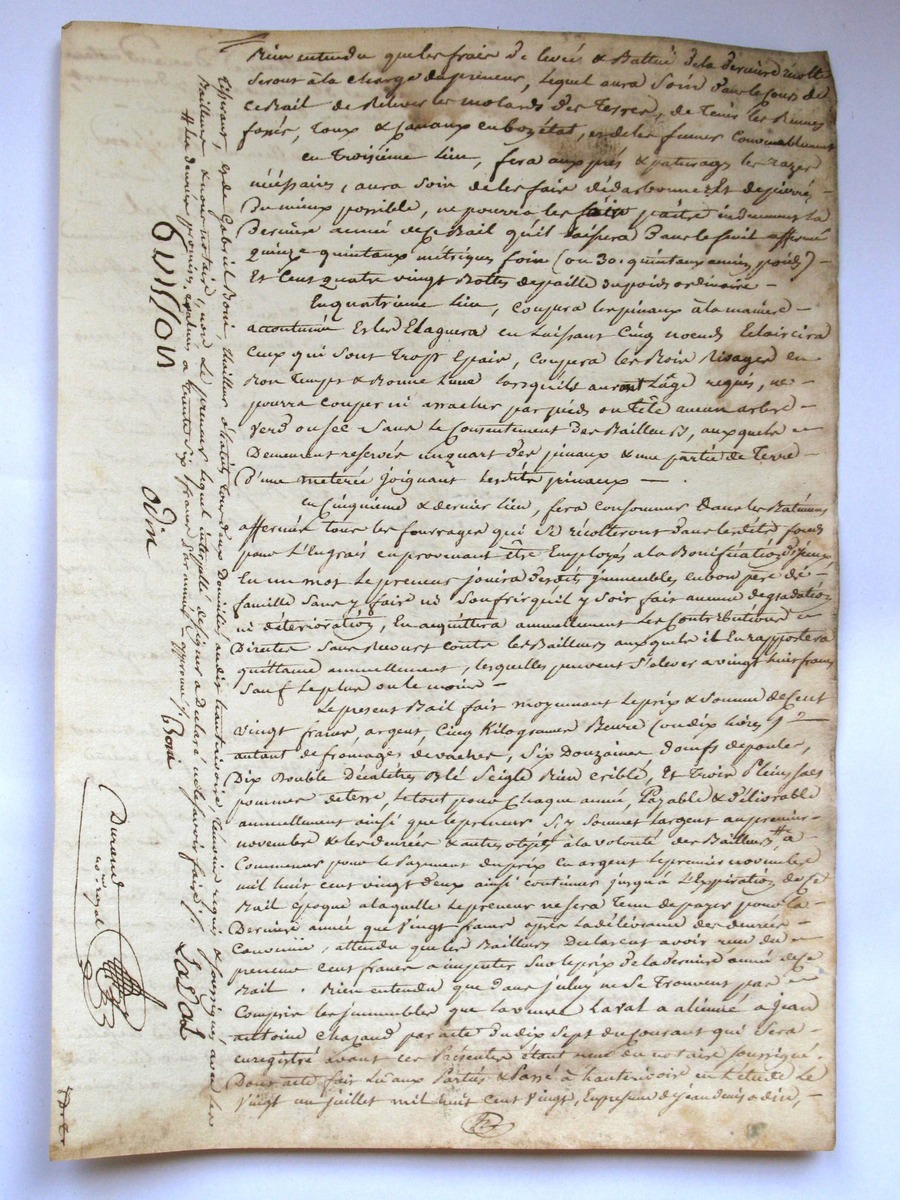 Bien entendu que les frais de levée & Battue de la derniere récolte
seront à la charge du preneur, lequel aura Soin dans le Cours de
ce Bail de Relever les molards des Terres, de Tenir les
fossés, & Canaux en bon état, et de les fumer Convenablement
en Troisiéme Lieu, fera aux prés & paturages les razes
nécéssaires, aura Soin de les faire &
du mieux possible, ne pourra les faire paître induement La
Derniere année de Ce Bail qu'il Laissera dans le fenil affermé
Quinze quintaux métriques foin (ou 30 quintaux ancien poids) –
Et Cent quatre vingt Bottes de paille du poids ordinaire –
En quatrieme Lieu, Coupera les pinaux à la maniere –
accoutumée Et les Elaguera en Laissant Cinq noeuds Eclaircira
Ceux qui Sont Trop Epais, Coupera les Bois Risagers en
Bon Temps & Bonne Lune lorsqu'ils auront L'âge requis, ne –
pourra Couper ni arracher par pieds ou tête aucun arbre –
Verd ou Sec Sans le Consentement des Bailleurs, auxquels –
Demeurent reservés un quart des pinaux & une partie de Terre –
D'une meterée joignant lesdits pinaux –
en Cinquieme & dernier Lieu, fera Consommer dans les Batimens
affermés tous les fourrages qui Se récolteront dans lesdits fonds
pour L'Engrais en provenant être Employés à la Bonification d'iceux
En un mot Le preneur jouira desdits immeubles en bon pere de
famille Sans y faire ni Souffrir qu'il y Soit fait aucune degradation
ni déterioration, En acquittera annuellement Les Contributions –
Directes Sans recourt contre les Bailleurs auxquels il En rapportera
quittance annuellement, lesquelles peuvent S'alever a vingt huit francs
Sauf Le plus ou le moins –
Le present Bail fait moyennant Le prix & Somme de Cent
vingt francs, argent, Cinq Kilogrames Beurre (ou dix Livres)
autant de fromages de vaches, Six Douzaines d'oeufs de poules,
Dix Double Décalitres Blé Seigle Bien criblé, Et Trois pleins Sacs
pommes de terre, Le tout pour Chaque année, Payable & délivrable
annuellement ainsi que le preneur S'y Soumet L'argent au premier –
novembre & les denrées & autres objets à la volonté des Bailleurs # à
Commencer pour le Payement du prix En argent le premier novembre
mil huit cent vingt deux ainsi continuer jusqu'à L'Expiration de Ce
Bail époque à laquelle Le preneur ne Sera Tenu de payer pour la –
Derniere année que Vingt francs après La délivrance des denrées –
Convenues, attendu que les Bailleurs Declarent avoir reçu du –
preneur Cent francs a imputer Sur le prix de la derniere année de Ce
Bail. Bien entendu que dans icelui ne Se Trouvent pas –
Compris les immeubles que La veuve Laval a aliénné a jean
antoine Chazaud par acte du dix Sept du Courant qui Sera –
enregistré avant ces Présentes étant reçu du notaire Soussigné.
Dont acte fait Lu aux Parties & Passé à hauterivoire en L'étude Le
Vingt un juillet mil huit cent Vingt, En présence de jean denis odin, –
Tisserant, & de Gabriel Boni, Tailleur d'habits tous deux Domiciliés audit hauterivoire témoins requis & Soussignés, avec les
Bailleurs & nous notaire, non Le preneur lequel interpellé de signer a déclaré ne le savoir faire.
# Les denrées promises, évaluées a trente Six francs par année, approuvé
Guisson
odin
Boni
Laval
Durand
no.re royal